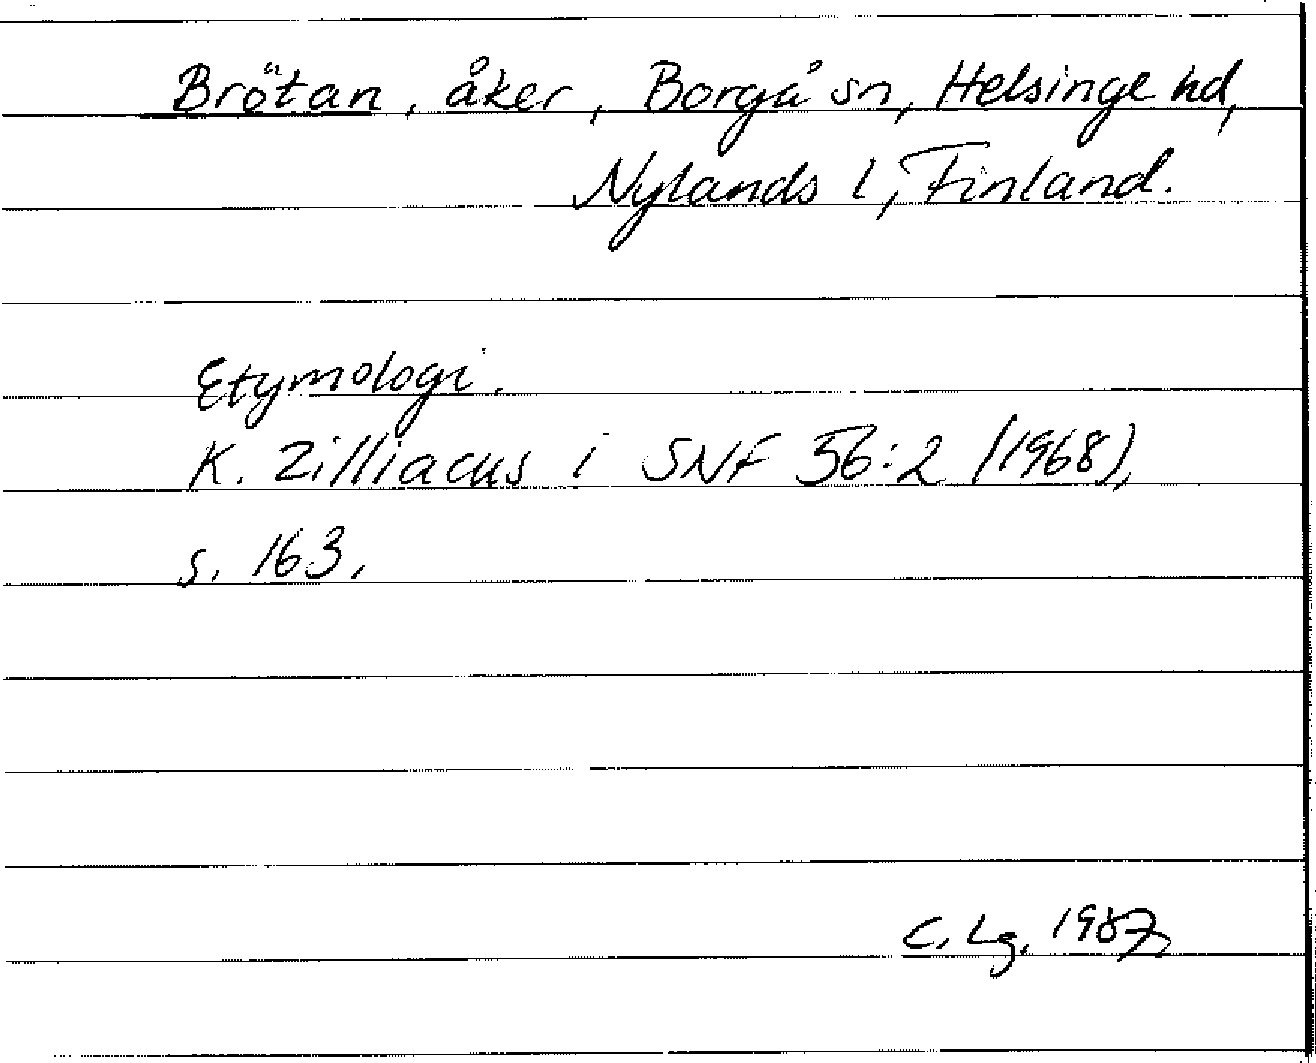 Brötan, åker, Borgå sn, Helsinge hd,
Nylands l, Finland.
Etymologi.
K. Zilliacus i SNF 56:2 (1968),
s. 163.
C. Lg. 1987